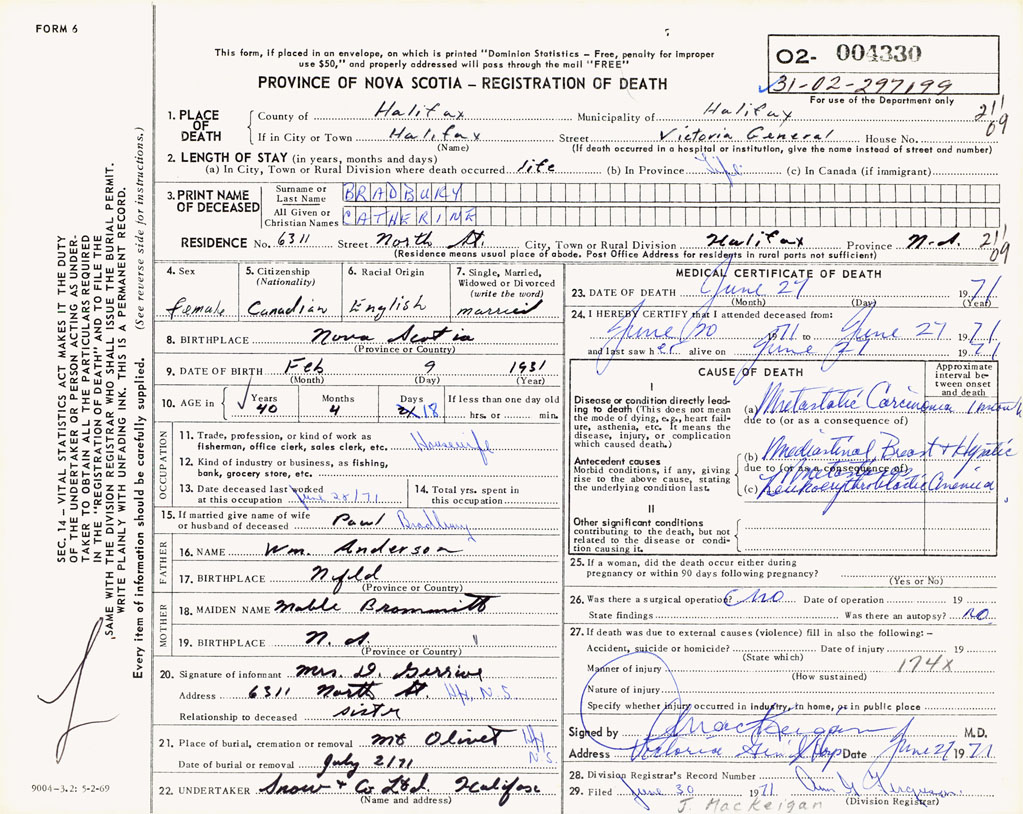 FORM 6
This form, if placed in an envelope, on which is printed "Dominion Statistics – Free, penalty for improper
use $50," and properly addressed will pass through the mail "FREE"
O2- 004330
31-02-297199
For use of the Department only
PROVINCE OF NOVA SCOTIA – REGISTRATION OF DEATH
1. PLACE OF DEATH
County of Halifax Municipality of Halifax
21/09
If in City or Town Halifax Street Victoria General House No.
(Name) (If death occurred in a hospital or institution, give the name instead of street and number)
2. LENGTH OF STAY (in years, months and days)
(a) In City, Town or Rural Division where death occurred life (b) In Province life (c) In Canada (if immigrant)
3. PRINT NAME OF DECEASED
Surname or Last Name BRADBURY
All Given or Christian Names CATHERINE
RESIDENCE No. 6311 Street North St. City, Town or Rural Division Halifax Province N.S. 21/09
(Residence means usual place of abode. Post Office Address for residents in rural parts not sufficient)
4. Sex
female
5. Citizenship
(Nationality)
Canadian
6. Racial Origin
English
7. Single, Married,
Widowed or Divorced
(write the word)
married
8. BIRTHPLACE Nova Scotia
(Province or Country)
9. DATE OF BIRTH Feb 9 1931
(Month) (Day) (Year)
10. AGE in Years 40 Months 4 Days 18 If less than one day old
hrs. or min.
OCCUPATION
11. Trade, profession, or kind of work as
fisherman, office clerk, sales clerk, etc. Housewife
12. Kind of industry or business, as fishing,
bank, grocery store, etc.
13. Date deceased last worked
at this occupation June 20/71
14. Total yrs. spent in
this occupation
15. If married give name of wife
or husband of deceased Paul Bradbury
FATHER
16. NAME Wm. Anderson
17. BIRTHPLACE Nfld
(Province or Country)
MOTHER
18. MAIDEN NAME Mable
19. BIRTHPLACE N.S. "
(Province or Country)
20. Signature of informant Mrs. D.
Address 6311 North St. Hfx, N.S.
Relationship to deceased sister
21. Place of burial, cremation or removal Mt Olivet Hfx N.S.
Date of burial or removal July 2/71
22. UNDERTAKER Snow & Co Ltd. Halifax
(Name and address)
MEDICAL CERTIFICATE OF DEATH
23. DATE OF DEATH June 27 1971
(Month) (Day) (Year)
24. I HEREBY CERTIFY that I attended deceased from:
June 20 1971 to June 27 1971
and last saw her alive on June 27 1971
CAUSE OF DEATH
Approximate
interval be-
tween onset
and death
I
Disease or condition directly lead-
ing to death (This does not mean
the mode of dying, e.g., heart fail-
ure, asthenia, etc. It means the
disease, injury, or complication
which caused death.)
(a) Metastatic Carcinoma 1 month
due to (or as a consequence of)
Antecedent causes
Morbid conditions, if any, giving
rise to the above cause, stating
the underlying condition last.
(b) Mediastinal Breast + Hepatic
due to (or as a consequence of) Metastases
(c) Leukoerythroblastic Anemia
II
Other significant conditions
contributing to the death, but not
related to the disease or condi-
tion causing it.
25. If a woman, did the death occur either during
pregnancy or within 90 days following pregnancy?
(Yes or No)
26. Was there a surgical operation? No Date of operation 19
State findings Was there an autopsy? No
27. If death was due to external causes (violence) fill in also the following: –
Accident, suicide or homicide? Date of injury 19
(State which)
Manner of injury 174X
(How sustained)
Nature of injury
Specify whether injury occurred in industry, in home, or in public place
Signed by MacKeigan M.D.
Address Victoria Gen'l Hosp Date June 27 1971
28. Division Registrar's Record Number
29. Filed June 30 1971 Ann G Ferguson
(Division Registrar)
J. MacKeigan
SEC. 14 – VITAL STATISTICS ACT MAKES IT THE DUTY
OF THE UNDERTAKER OR PERSON ACTING AS UNDER-
TAKER TO OBTAIN ALL THE PARTICULARS REQUIRED
IN THE "REGISTRATION OF DEATH" AND TO FILE THE
SAME WITH THE DIVISION REGISTRAR WHO SHALL ISSUE THE BURIAL PERMIT.
WRITE PLAINLY WITH UNFADING INK. THIS IS A PERMANENT RECORD.
Every item of information should be carefully supplied. (See reverse side for instructions.)
9004-3.2: 5-2-69